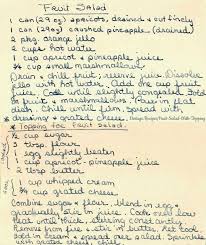 Fruit Salad
1 can (29 oz) apricots, drained & cut finely
1 can (29 oz) crushed pineapple (drained)
2 pkg. orange jello
2 cups hot water
1 cup apricot & pineapple juice
3/4 cup small marshmallows
Drain & chill fruit, reserve juice. Dissolve
jello with hot water. Add one cup fruit
juice. Cool until slightly congealed. Fold
fruit & marshmallows. Pour in flat
dish. Chill until firm. Spread with
dressing & grated cheese.
Vintage Recipes Fruit Salad With Topping
* Topping for Fruit Salad.
1/2 cup sugar
3 tbsp flour
1 egg slightly beaten
1 cup apricot - pineapple juice
2 tbsp butter
1 cup whipped cream
3/4 cup grated cheese
Combine sugar & flour. blend in egg &
gradually stir in juice. Cook over low
heat until thick, stirring constantly
Remove from fire & stir in butter. Let cool
fold in cream & spread over salad. Sprinkle
with grated cheese. Chill